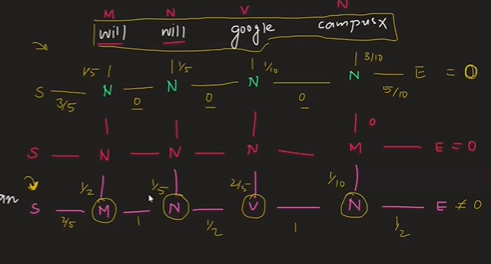 M N V N
will will google campusx
1/5 1/5 1/10 3/10
S N N N N E = 0
3/5 0 0 0 5/10
0
S N N N M E = 0
1/2 1/5 2/5 1/10
S M N V N E ≠ 0
1 1/2 1 1/2